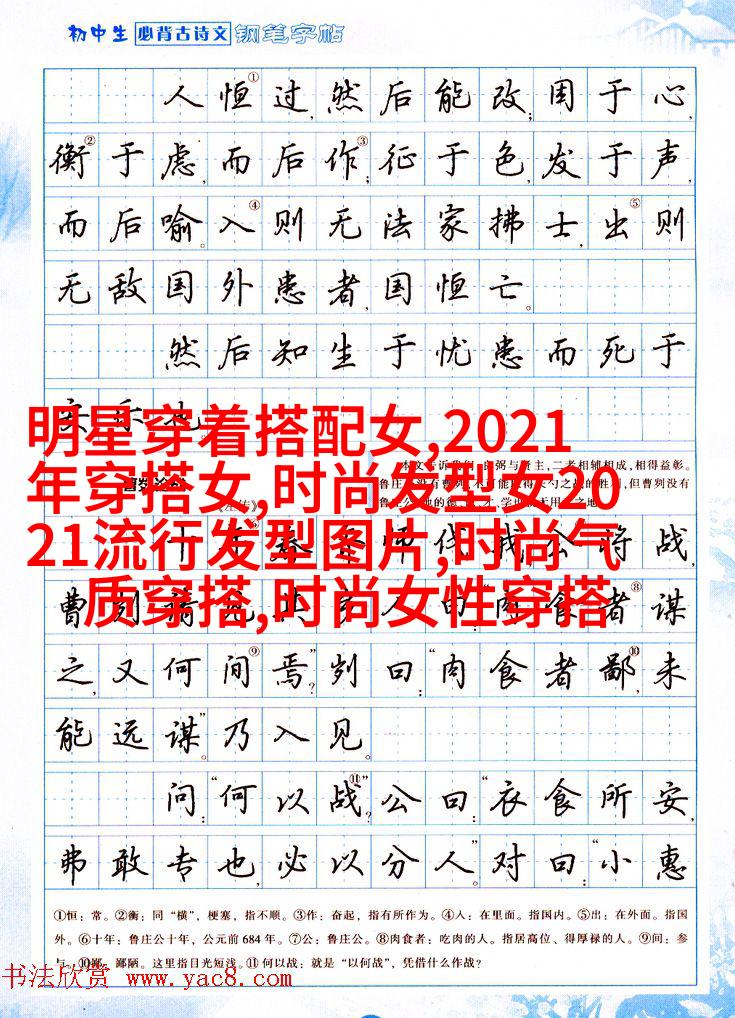 初中生 必背古诗文 钢笔字帖
人恒①过,然后能改;困于心,
衡②于虑,而后作③;征于色,发于声,
而后喻。入④则无法家拂士,出⑤则
无敌国外患者,国恒亡。
然后知生于忧患而死于
安乐也。
明星穿着搭配女,2021
年穿搭女,时尚发型女20
21流行发型图片,时尚气
质穿搭,时尚女性穿搭
曹刿论战
《左传》
师伐我,公将战,
曹刿请见。其乡人曰:“肉食者⑧谋
之,又何间⑨焉?”刿曰:“肉食者鄙⑩,未
能远谋。”乃入见。
问:“何以战⑪?”公曰:“衣食所安,
弗敢专也,必以分人。”对曰:“小惠
①恒:常。②衡:同“横”,梗塞,指不顺。③作:奋起,指有所作为。④入:在里面。指国内。⑤出:在外面。指国
外。⑥十年:鲁庄公十年,公元前684年。⑦公:鲁庄公。⑧肉食者:吃肉的人。指居高位、得厚禄的人。⑨间:参
与。⑩鄙:鄙陋。这里指目光短浅。⑪何以战:就是“以何战”,凭借什么作战?
书法欣赏 www.yac8.com